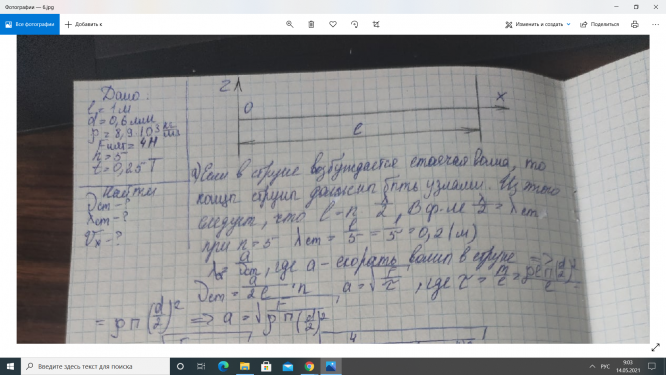 Фотографии — 6.jpg
Все фотографии
Добавить к
Изменить и создать
Поделиться
Дано:
l = 1 м
d = 0,6 мм
ρ = 8,9·10³ кг/м³
Fнат = 4Н
n = 5
t = 0,25 T
Найти
νст - ?
λст - ?
Vx - ?
z
0
x
l
а) Если в струне возбуждается стоячая волна, то
концы струны должны быть узлами. Из этого
следует, что l = n λ/2, В ф-ле λ/2 = λст
при n = 5 λст = l/5 = 1/5 = 0,2 (м)
где a - скорость волны в струне =>
νст = a/2l · n, a = √F/τ, где τ = m/l = ρlπ(d/2)²/l =
= ρπ(d/2)² => a = √F/ρπ(d/2)²
Введите здесь текст для поиска
РУС
9:03
14.05.2021